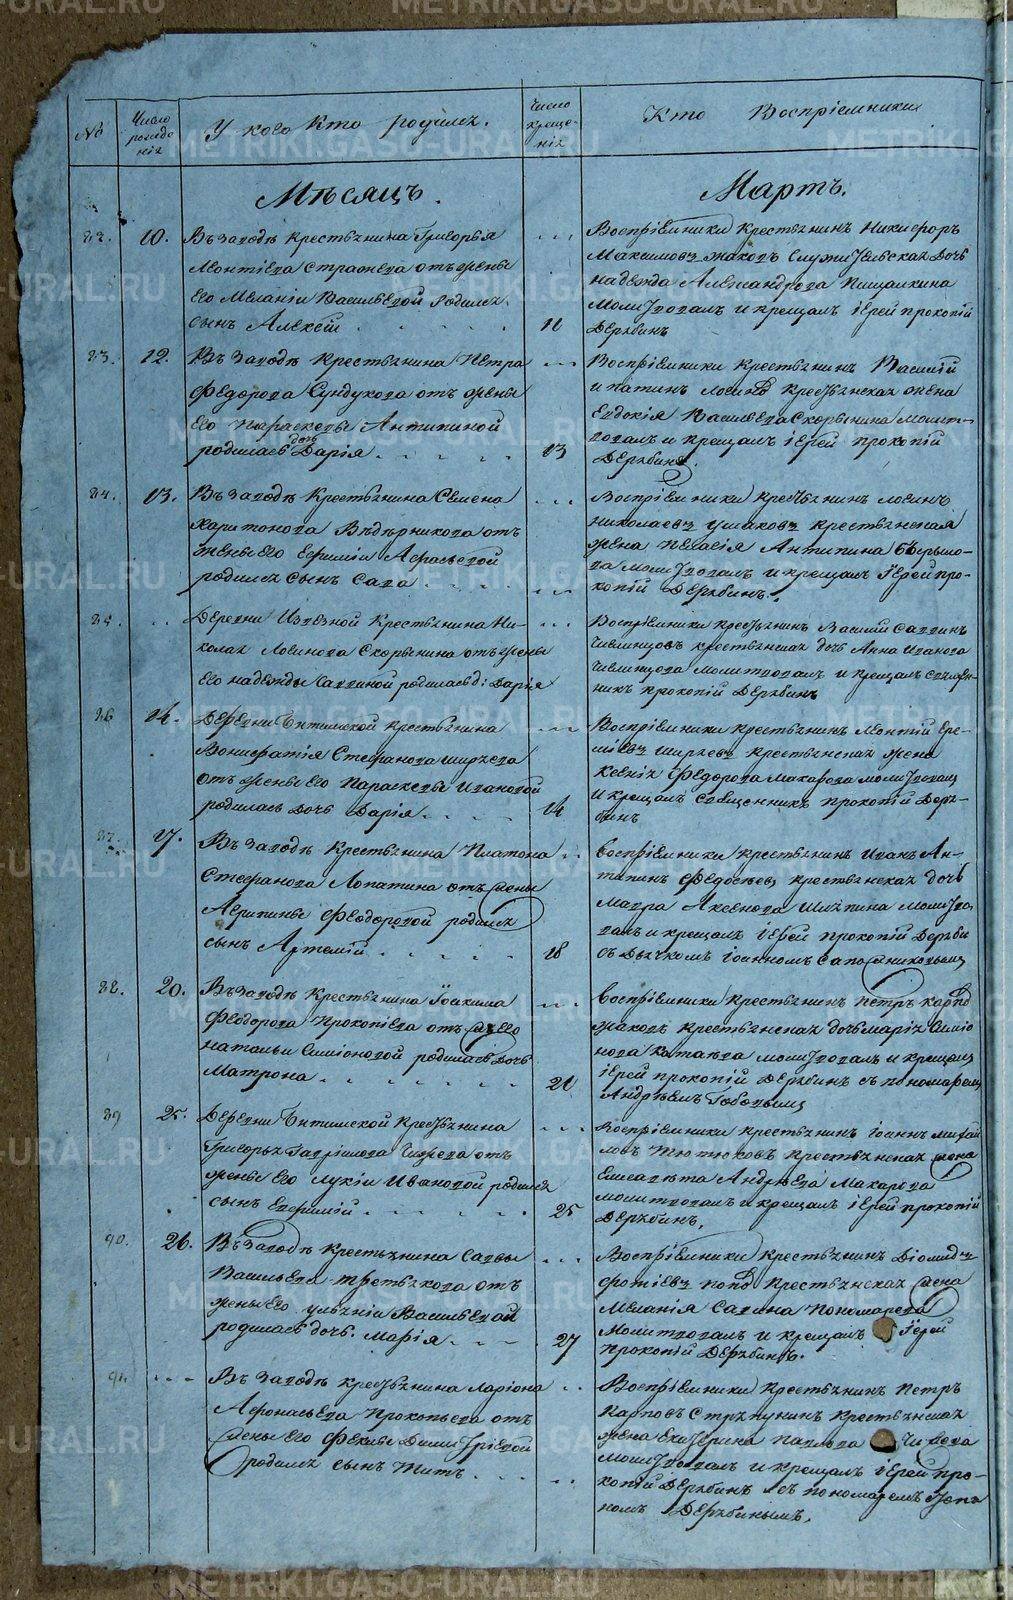 №
Число рожденія
У кого Кто родился.
Число крещенія
Кто Воспріемники
Мѣсяцъ.
Мартъ.
82. 10. Въ Заводѣ Крестьянина Григорья
Леонтіева от жены
его Меланіи Васильевой родился
сынъ Алексѣй 11
Воспріемники Крестьянинъ Никифоръ
Максимовъ дочь
надежда Александрова Пищалкина
Молитвовалъ и крещалъ іерей прокопій
Дерябинъ
83. 12. Въ Заводѣ Крестьянина Петра
Федорова Сундукова отъ жены
его Параскевы Антипиной
родилась дочь Дарія 13
Воспріемники Крестьянинъ Василій
крестьянская жена
Евдокія Васильева Скорынина молит-
вовалъ и крещалъ іерей прокопій
Дерябинъ.
84. 13. Въ Заводѣ Крестьянина Семена
Харитонова Ведерникова отъ
жены его Ефиміи
родился сынъ Сава
Воспріемники крестьянинъ логинъ
николаевъ Ушаковъ крестьянская
жена Пелагія Антипина
молитвовалъ и крещалъ Іерей про-
копій Дерябинъ.
85. Деревни Крестьянина Ни-
колая Логинова Скорынина отъ жены
его надежды Савиной родилась д: Дарія
Воспріемники крестьянинъ Василій Саввинъ
крестьянская дочь Анна Иванова
молитвовалъ и крещалъ священ-
никъ прокопій Дерябинъ
86 14. Деревни крестьянина
Вонифатія Стефанова Ширяева
отъ жены его Параскевы Ивановой
родилась дочь Дарія 14
Воспріемники крестьянинъ Леонтій Ере-
мѣевъ Ширяевъ крестьянская жена
Ксенія Федорова Макарова молитвовалъ
и крещалъ Священникъ прокопій Деря-
бинъ
87. 17. Въ Заводѣ Крестьянина Платона
Стефанова Лопатина отъ жены
Агрипины Феодоровой родился
сынъ Артемій 18
Воспріемники крестьянинъ Иванъ Ан-
типинъ Федосѣевъ, крестьянская дочь
Мавра Аксенова молитво-
валъ и крещалъ іерей прокопій Деряби
съ Дьячкомъ іоанномъ Сапожниковымъ
88. 20. Въ Заводѣ Крестьянина Іоакима
Феодорова Прокопіева отъ ж его
натальи Симіоновой родилась дочь
Матрона 21
Воспріемники Крестьянинъ Петръ
крестьянская дочь марія Симіо
нова молитвовалъ и крещалъ
іерей прокопій Дерябинъ съ пономаремъ
Андрѣемъ
89 25. Деревни Крестьянина
Григорья отъ
жены его лукіи Ивановой родился
сынъ Евфимій 25
Воспріемники крестьянинъ іоаннъ михай
ловъ крестьянская жена
Елисавета Андрѣева Макарова
молитвовалъ и крещалъ іерей прокопій
Дерябинъ,
90. 26. Въ Заводѣ Крестьянина Саввы
Васильева третьякова отъ
жены его Васильевой
родилась дочь. марія 27
Воспріемники Крестьянинъ Діомидъ
фотіевъ Крестьянская жена
Меланія Савина Пономарева
Молитвовалъ и крещалъ Іерей
прокопій Дерябинъ.
91. Въ Заводѣ крестьянина ларіона
Афонасьева Прокопьева отъ
жены его Феклы Димитріевой
родился сынъ Титъ
Воспріемники Крестьянинъ Петръ
Карповъ Стряпунинъ Крестьянская
жена Екатерина Павлова
молитвовалъ и крещалъ іерей про-
копій Дерябинъ съ пономаремъ
Дерябинымъ.
METRIKI.GASO-URAL.RU